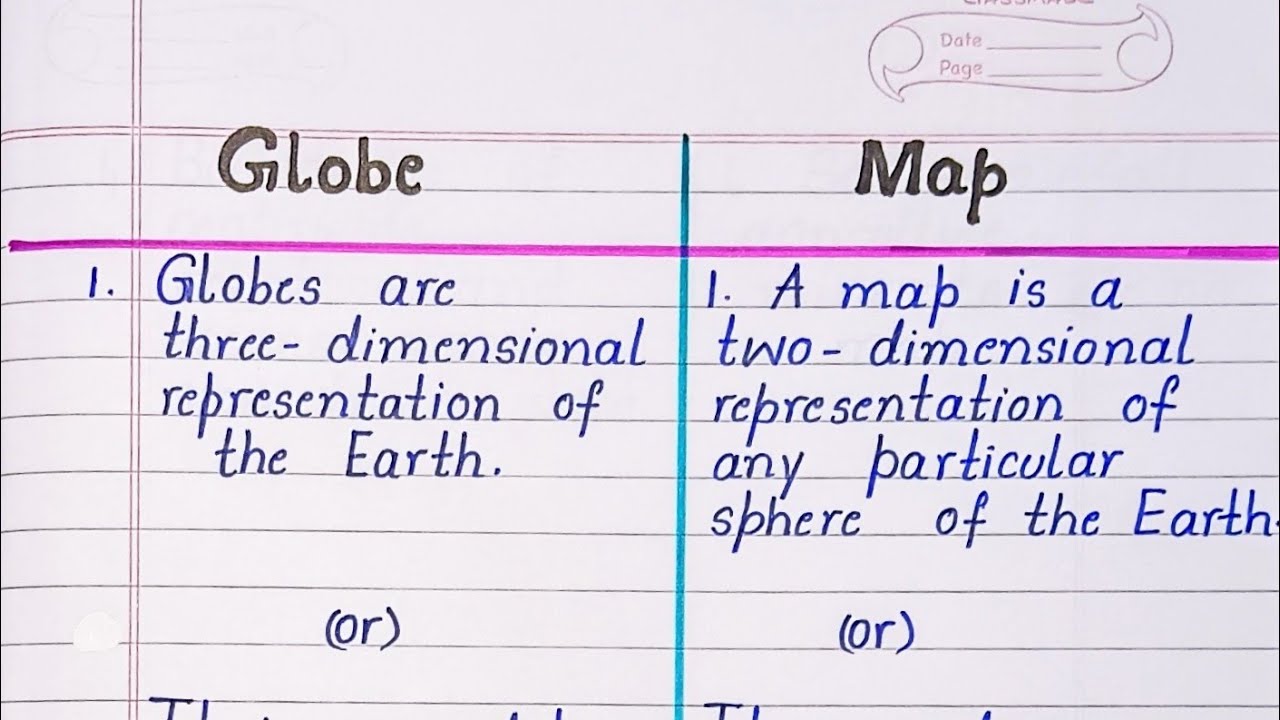 Date
Page
Globe
Map
1. Globes are
three- dimensional
representation of
the Earth.
(or)
1. A map is a
two- dimensional
representation of
any particular
sphere of the Earth.
(or)